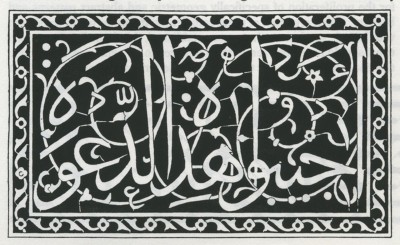 اجيبوا هذه الدعوة